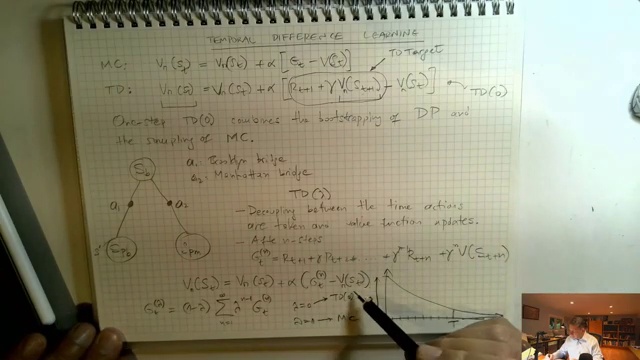 TEMPORAL DIFFERENCE LEARNING
TD Target
MC: Vπ(St) = Vπ(St) + α [Gt − V(St)]
TD: Vπ(St) = Vπ(St) + α [Rt+1 + γ Vπ(St+1) − Vπ(St)] TD(0)
One-step TD(0) combines the bootstrapping of DP and
the sampling of MC.
Sb
a1: Brooklyn bridge
a2: Manhattan bridge
a1
a2
TD(λ)
- Decoupling between the time actions
are taken and value function updates.
- After n-steps
Gt(n) = Rt+1 + γ Rt+2 + ... + γ^n-1 Rt+n + γ^n V(St+n)
Vπ(St) = Vπ(St) + α (Gt(λ) − Vπ(St))
Gt(λ) = (1-λ) Σ n=1 ∞ λ^n-1 Gt(n)
λ=0 → TD(0)
λ=1 → MC
T